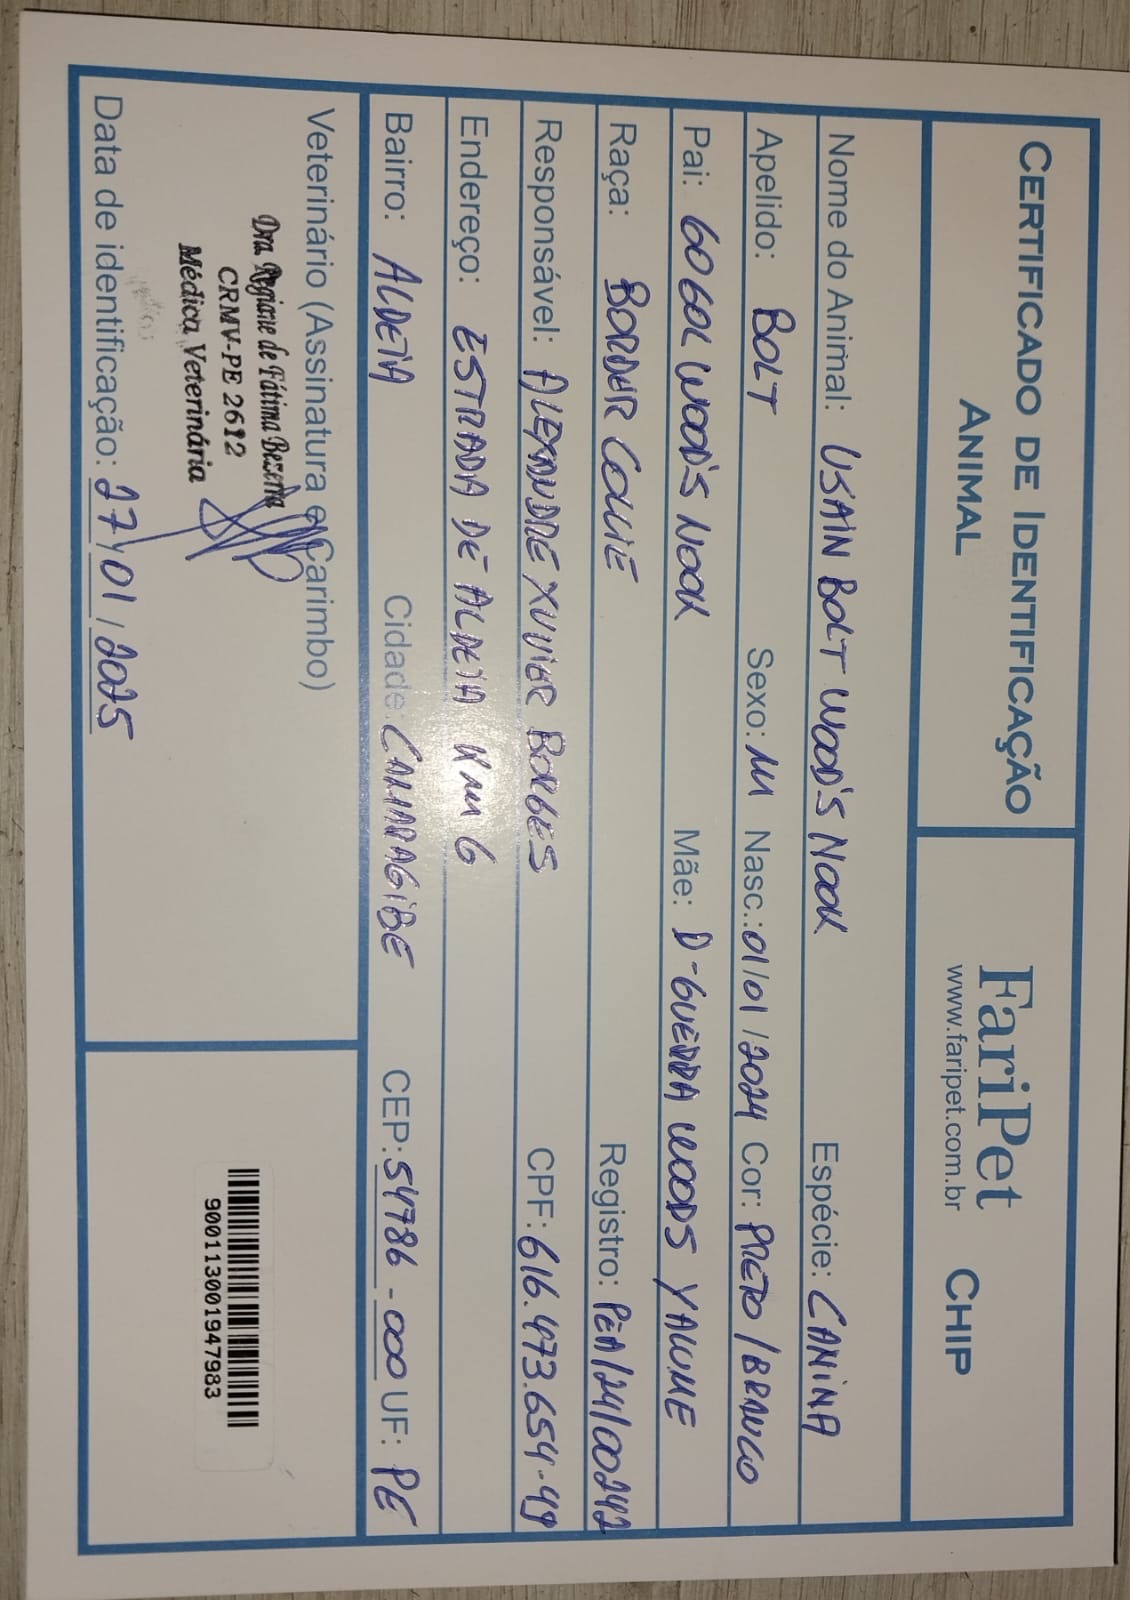 CERTIFICADO DE IDENTIFICAÇÃO
ANIMAL
FariPet CHIP
www.faripet.com.br
Nome do Animal: USAIN BOLT WOOD'S NOOK Espécie: CANINA
Apelido: BOLT Sexo: M Nasc.: 01/01/2024 Cor: PRETO/BRANCO
Pai: GOGOL WOOD'S NOOK Mãe: D-GUERRA WOODS YAUME
Raça: BORDER COLLIE Registro: PEA/24/00242
Responsável: ALEXANDRE XAVIER BORGES CPF: 616.473.654-49
Endereço: ESTRADA DE ALDEIA KM 6
Bairro: ALDEIA Cidade: CAMARAGIBE CEP: 54786-000 UF: PE
Veterinário (Assinatura e Carimbo)
Dra. Regiane de Fátima Bezerra
CRMV-PE 2612
Médica Veterinária
Data de identificação: 27/01/2025
900113001947983